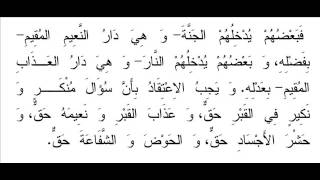 فَبَعْضُهُمْ يُدْخِلُهُمُ الجَنَّةَ- وَ هِيَ دَارُ النَّعِيمِ المُقِيمِ-
بِفَضْلِهِ، وَ بَعْضُهُمْ يُدْخِلُهُمْ النَّارَ- وَ هِيَ دَارُ العَــذَابِ
المُقِيمِ- بِعَدْلِهِ. وَ يَجِبُ الاِعْتِقَادُ بِأَنَّ سُؤَالَ مُنْكَــرٍ وَ
نَكِيرٍ فِي القَبْرِ حَقٌّ، وَ عَذَابَ القَبْرِ وَ نَعِيمَهُ حَقٌّ، وَ
حَشْرَ الأَجْسَادِ حَقٌّ، وَ الحَوْضَ وَ الشَّفَاعَةَ حَقٌّ.